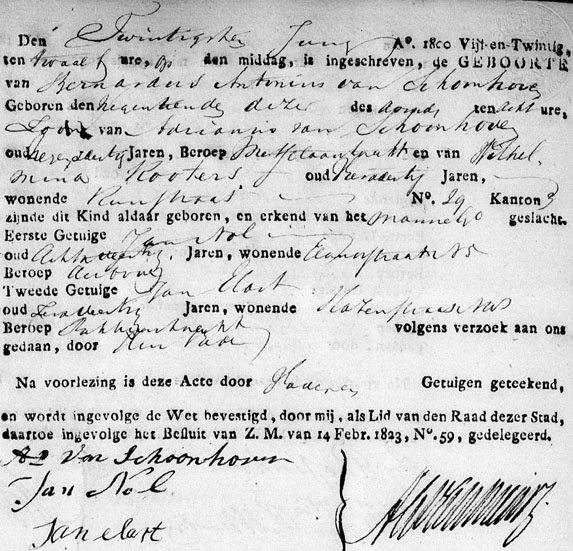 Den Twintigsten Juny A°. 1800 Vijf-en-Twintig,
ten twaalf ure, op den middag, is ingeschreven, de GEBOORTE
van Bernardus Antonius van Schoonhoven
Geboren den Negentiende dezer des avonds ten acht ure,
Zoon van Adrianus van Schoonhoven
oud Jaren, Beroep Metselaarsknecht en van Wilhel
mina Kooters oud Jaren,
wonende N°. 29 Kanton 3
zijnde dit Kind aldaar geboren, en erkend van het mannel geslacht.
Eerste Getuige Jan Nol
oud Jaren, wonende N5
Beroep
Tweede Getuige Jan Elart
oud Jaren, wonende Rozenstraat
Beroep volgens verzoek aan ons
gedaan, door den Vader
Na voorlezing is deze Acte door Vader en Getuigen geteekend,
en wordt ingevolge de Wet bevestigd, door mij, als Lid van den Raad dezer Stad,
daartoe ingevolge het Besluit van Z. M. van 14 Febr. 1823, N°. 59, gedelegeerd.
Ad Van Schoonhoven
Jan Nol
Jan elart